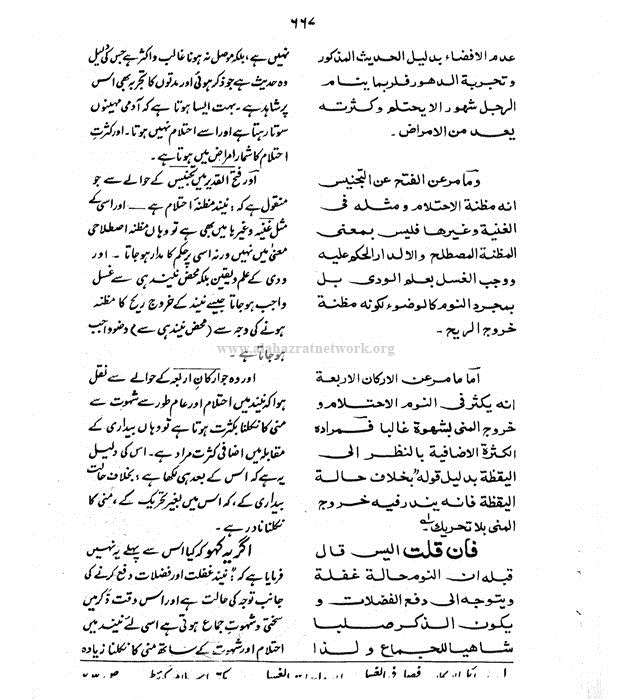 ۶۶۷
عدم الافضاء بدليل الحديث المذكور
وتجربة الدهور فلربما ينام
الرجل شهور الايحتلم وكثرته
يعد من الامراض۔
ومامرعن الفتح عن التجنيس
انه مظنة الاحتلام ومثله فى
الغنية وغيرها فليس بمعنى
المظنة المصطلح والالدار الحكم عليه
ووجب الغسل بعلم الودى بل
بمجرد النوم كالوضوء لكونه مظنة
خروج الريح۔
اما مامرعن الاركان الاربعة
انه يكثر فى النوم الاحتلام و
خروج المنى بشهوة غالبا فمراده
الكثرة الاضافية بالنظر الى
اليقظة بدليل قوله "بخلاف حالة
اليقظة فانه يندر فيه خروج
المنى بلا تحريك۔
فان قلت اليس قال
قبله ان النوم حالة غفلة
ويتوجه الى دفع الفضلات و
يكون الذكر صلبا
شاهيا للجماع ولذا
نہیں ہے، بلکہ موصل نہ ہونا غالب واکثر ہے جس کی دلیل
وہ حدیث ہے جو ذکر ہوئی اور مدتوں کا تجربہ بھی اس
پر شاہد ہے۔ بہت ایسا ہوتا ہے کہ آدمی مہینوں
سوتا رہتا ہے اور اسے احتلام نہیں ہوتا۔ اور کثرتِ
احتلام کا شمار امراض میں ہوتا ہے۔
اور فتح القدیر میں تجنیس کے حوالے سے جو
منقول ہے کہ: نیند مظنہ احتلام ہے — اور اسی کے
مثل غنیہ وغیرہا میں بھی ہے تو وہاں مظنہ اصطلاحی
معنٰی میں نہیں ورنہ اسی پر حکم کا مدار ہو جاتا۔ اور
ودی کے علم ویقین بلکہ محض نیند ہی سے غسل
واجب ہوجاتا جیسے نیند کے خروج ریح کا مظنہ
ہونے کی وجہ سے (محض نیند ہی سے) وضو واجب
ہوجاتا ہے۔
www.alahazratnetwork.org
اور وہ جو ارکان اربعہ کے حوالے سے نقل
ہوا کہ نیند میں احتلام اور عام طور سے شہوت سے
منی کا نکلنا بکثرت ہوتا ہے تو وہاں بیداری کے
مقابلہ میں اضافی کثرت مراد ہے۔ اس کی دلیل
یہ ہے کہ اس کے بعد ہی لکھا ہے: بخلاف حالت
بیداری کے، کہ اس میں بغیر تحریک کے، منی کا
نکلنا نادر ہے۔
اگر یہ کہو کہ کیا اس سے پہلے یہ نہیں
فرمایا ہے کہ: نیند غفلت اور فضلات دفع کرنے کی
جانب توجہ کی حالت ہے اور اس وقت ذکر میں
سختی وشہوتِ جماع ہوتی ہے اسی لئے نیند میں
احتلام اور شہوت کے ساتھ منی کا نکلنا زیادہ